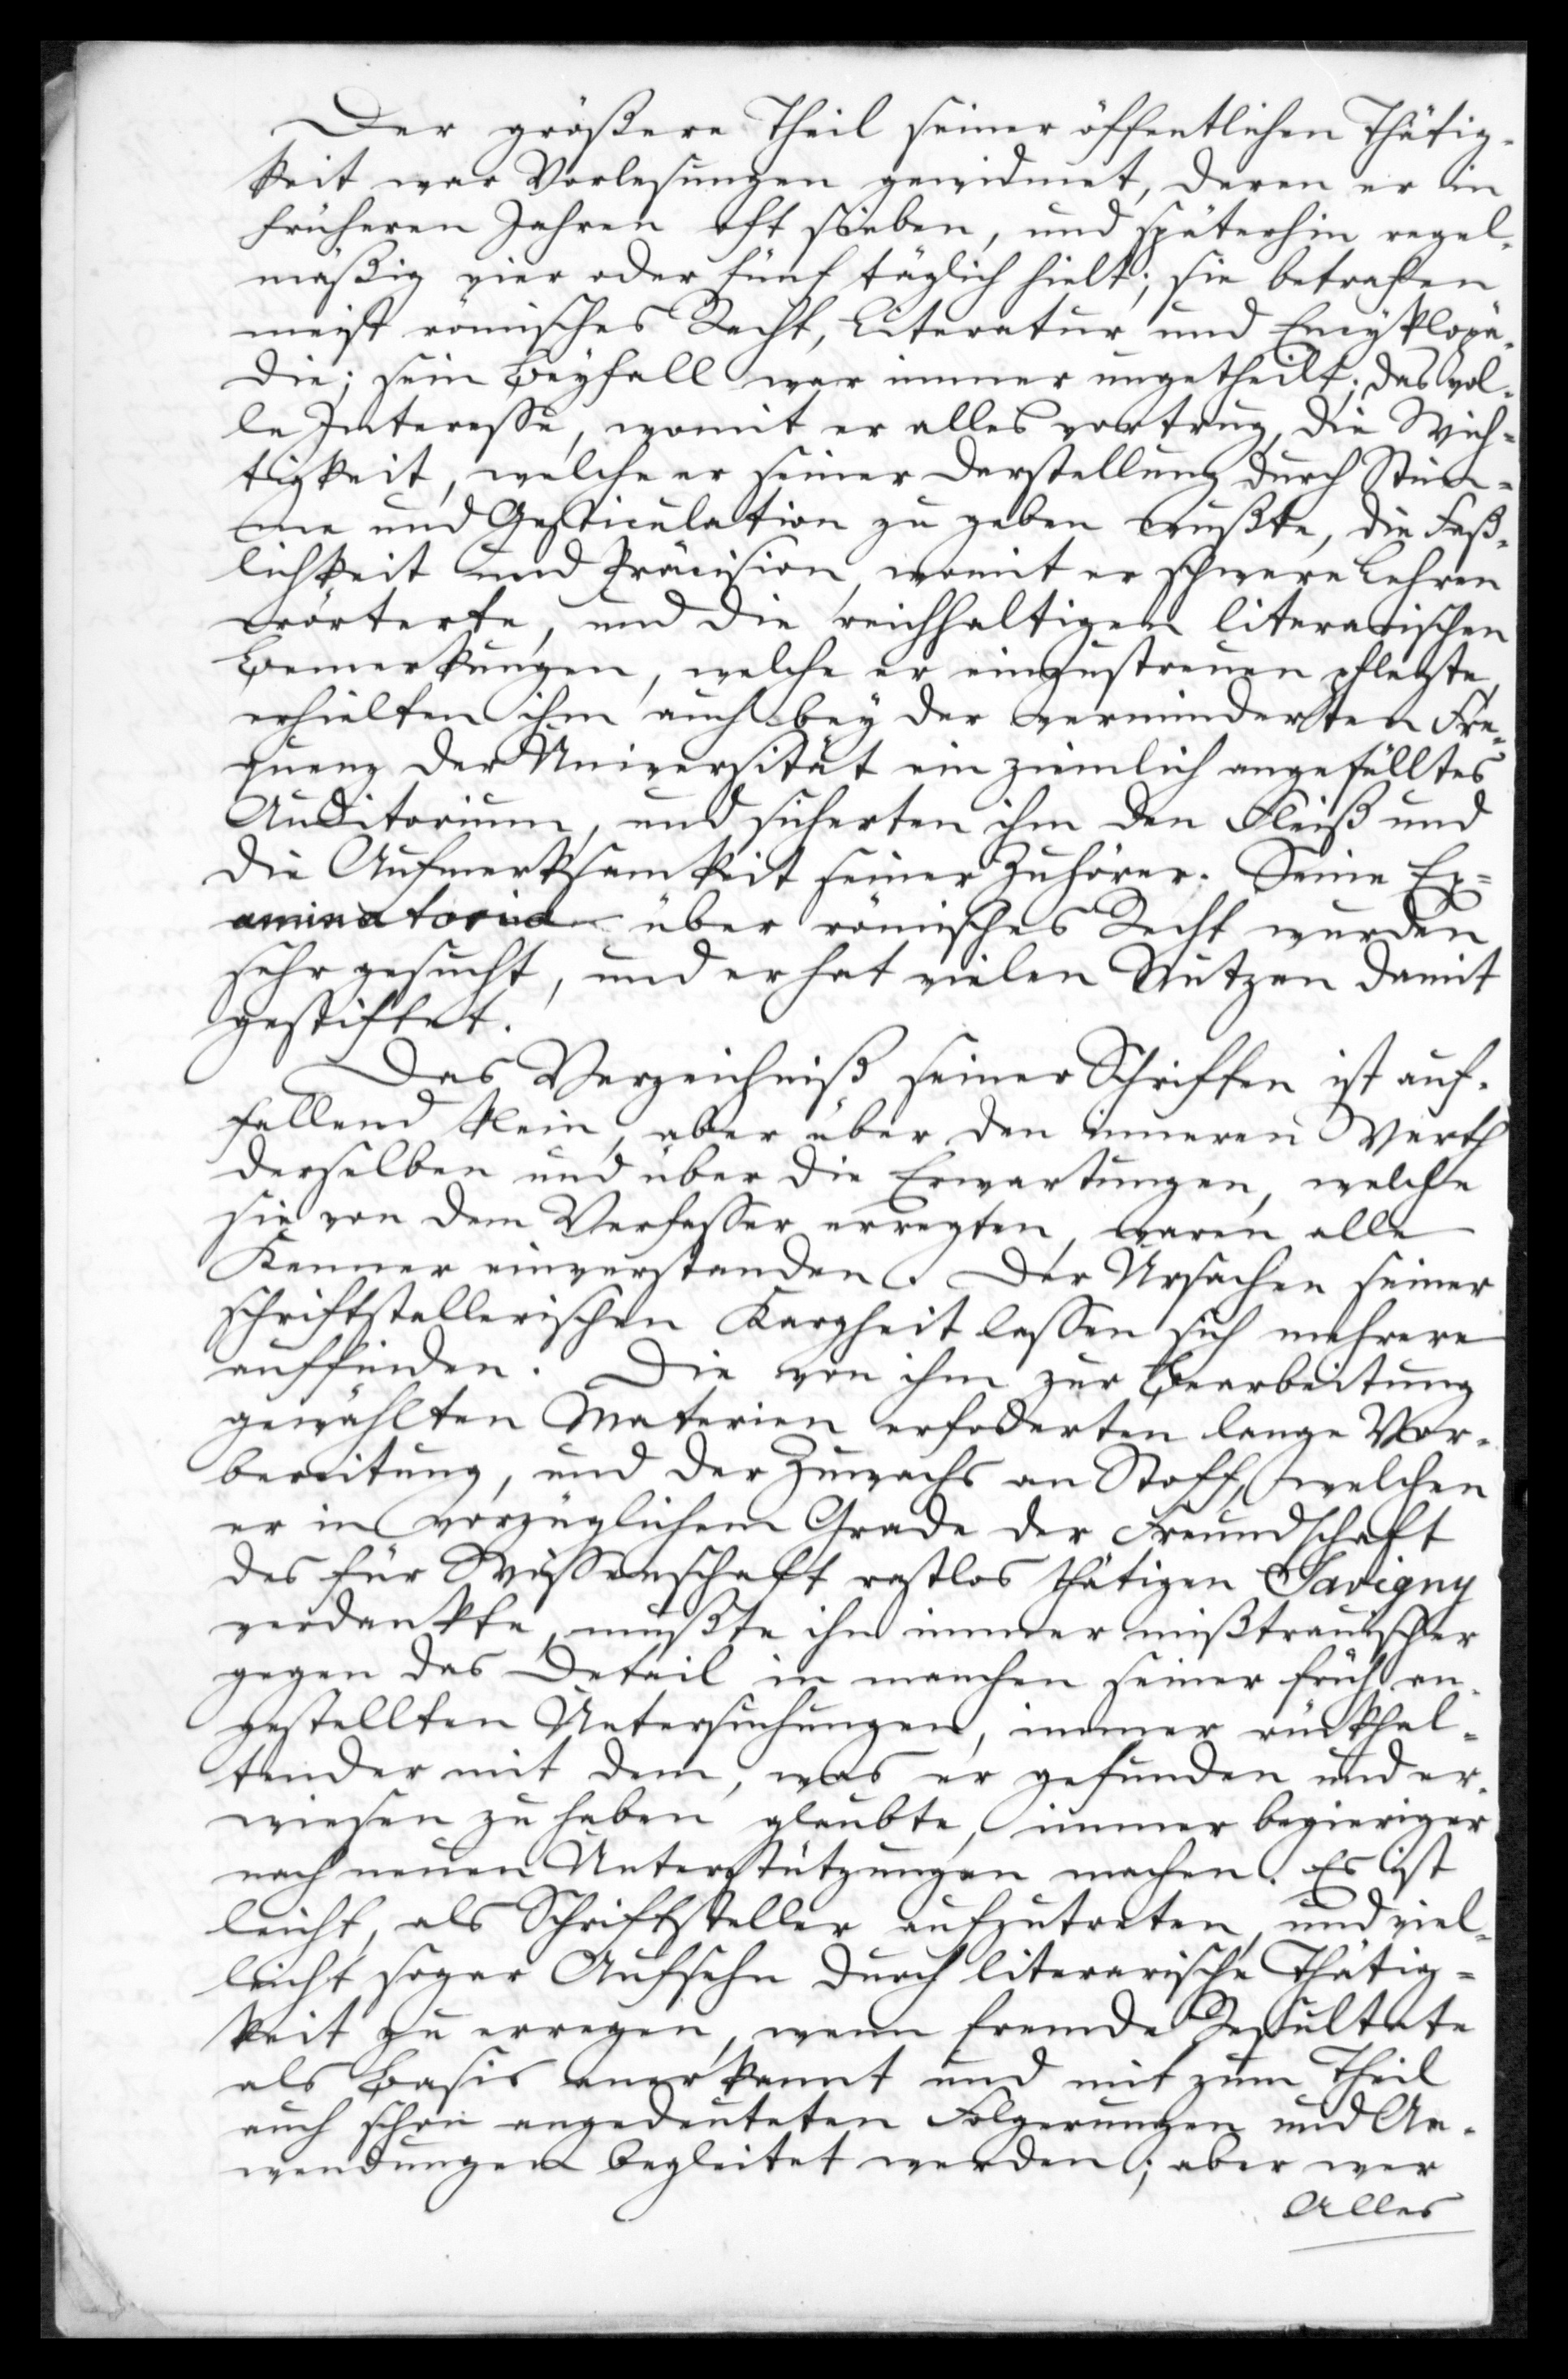 Der größere Theil seiner öffentlichen Thätig-
keit war Vorlesungen gewidmet, deren er in
früheren Jahren oft sieben, und späterhin regel-
mäßig vier oder fünf täglich hielt; sie betrafen
meist römisches Recht, Literatur und Encyklopä-
die; sein Beyfall war immer ungetheilt; das vol-
le Interesse, womit er alles vortrug, die Wich-
tigkeit, welche er seiner Darstellung durch Stim-
me und Gesticulation zu geben wußte, die Faß-
lichkeit und Präcision, womit er schwere Lehren
erörterte, und die reichhaltigen literarischen
Bemerkungen, welche er einzustreuen pflegte,
erhielten ihm auch bey der verminderten Fre-
quenz der Universität ein ziemlich angefülltes
Auditorium, und sicherten ihm den Fleiß und
die Aufmerksamkeit seiner Zuhörer. Seine Ex-
aminatoria über römisches Recht wurden
sehr gesucht, und er hat vielen Nutzen damit
gestiftet.
Das Verzeichniß seiner Schriften ist auf-
fallend klein, aber über den inneren Werth
derselben und über die Erwartungen, welche
sie von dem Verfasser erregten, waren alle
Kenner einverstanden. Der Ursachen seiner
schriftstellerischen Kargheit lassen sich mehrere
auffinden. Die von ihm zur Bearbeitung
gewählten Materien erfoderten lange Vor-
bereitung, und der Zuwachs an Stoff, welchen
er in vorzüglichem Grade der Freundschaft
des für Wissenschaft rastlos thätigen Savigny
verdankte, mußte ihn immer mißtrauischer
gegen das Detail in manchen seiner früh an-
gestellten Untersuchungen, immer rückhal-
tender mit dem, was er gefunden und er-
wiesen zu haben glaubte, immer begieriger
nach neuen Unterstützungen machen. Es ist
leicht, als Schriftsteller aufzutreten, und viel-
leicht sogar Aufsehn durch literarische Thätig-
keit zu erregen, wenn fremde Resultate
als Basis anerkannt und mit zum Theil
auch schon angedeuteten Folgerungen und An-
wendungen begleitet werden; aber wer
Alles